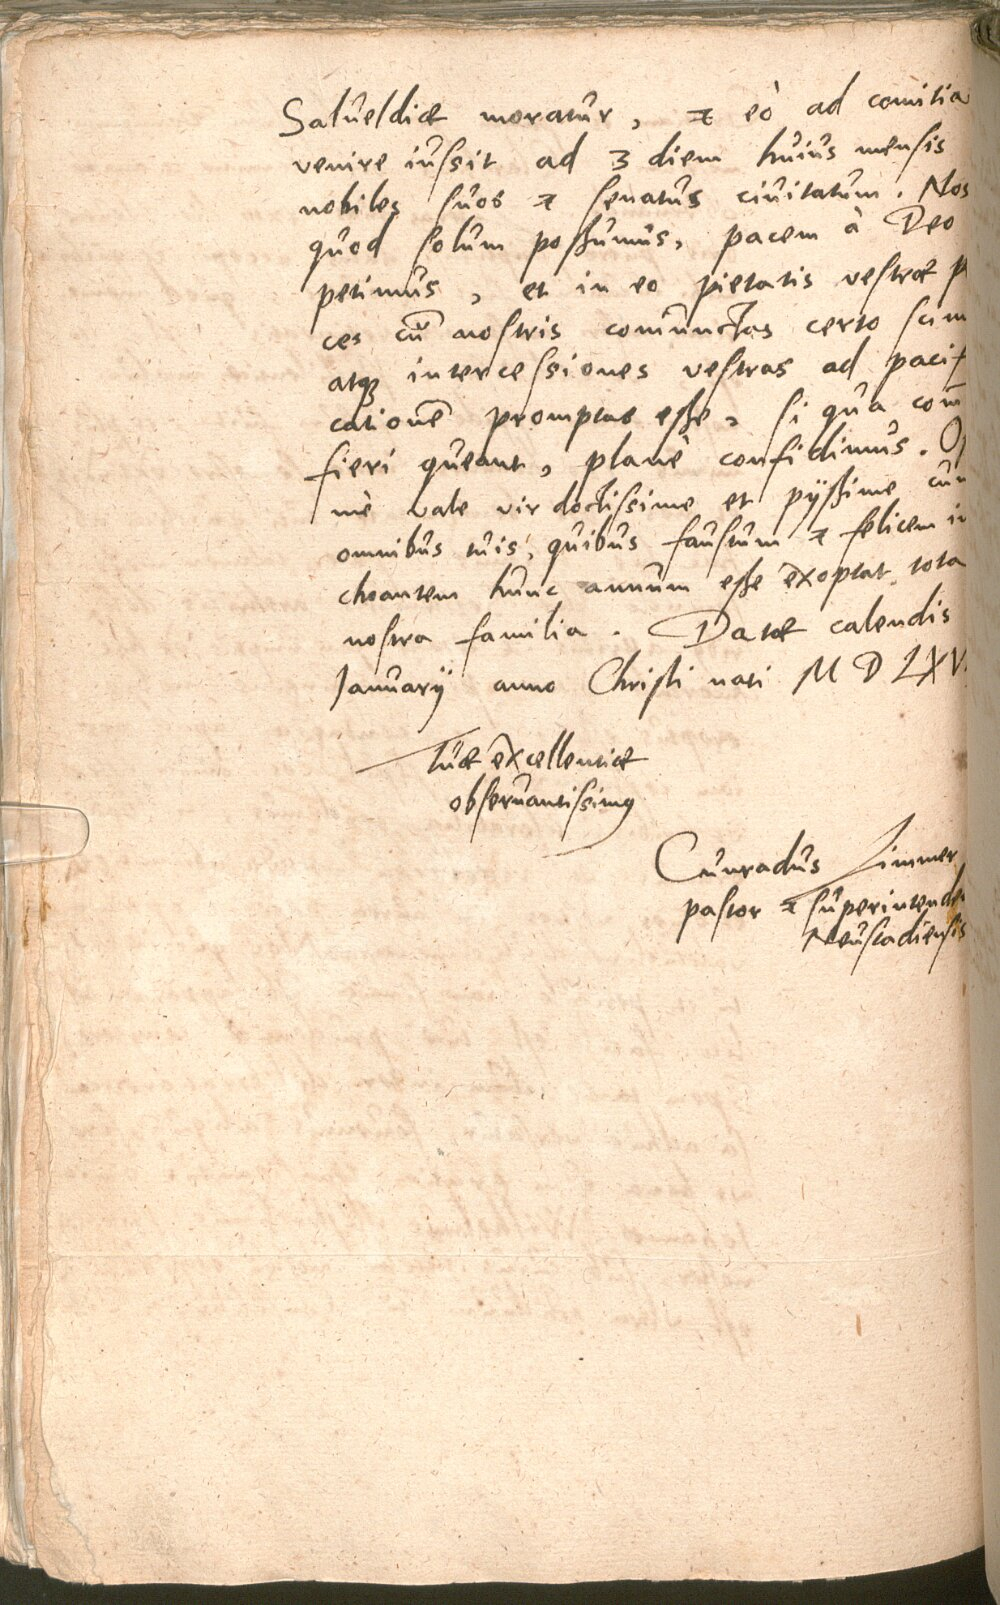 Salueldiae moratur, & eò ad comitia
venire iussit ad 3 diem huius mensis
nobiles suos & senatus ciuitatum. Nos
quod solum possumus, pacem à Deo
petimus, et in eo pietatis vestrae p
ces cū nostris coniunctas certo scim
atqꝫ intercessiones vestras ad pacif
cationē promptas esse, si qua com̄
fieri queant, planè confidimus. Op
mè vale vir doctissime et pijssime cum
omnibus tuis, quibus faustum & felicem in
choantem hunc annum esse exoptat tota
nostra familia. Datae calendis
Januarij anno Christi nati M D LXV
Tuae excellentiae
obseruantissimꝰ
Cunradus Zimmer
pastor & superintenden
Neustadiensis